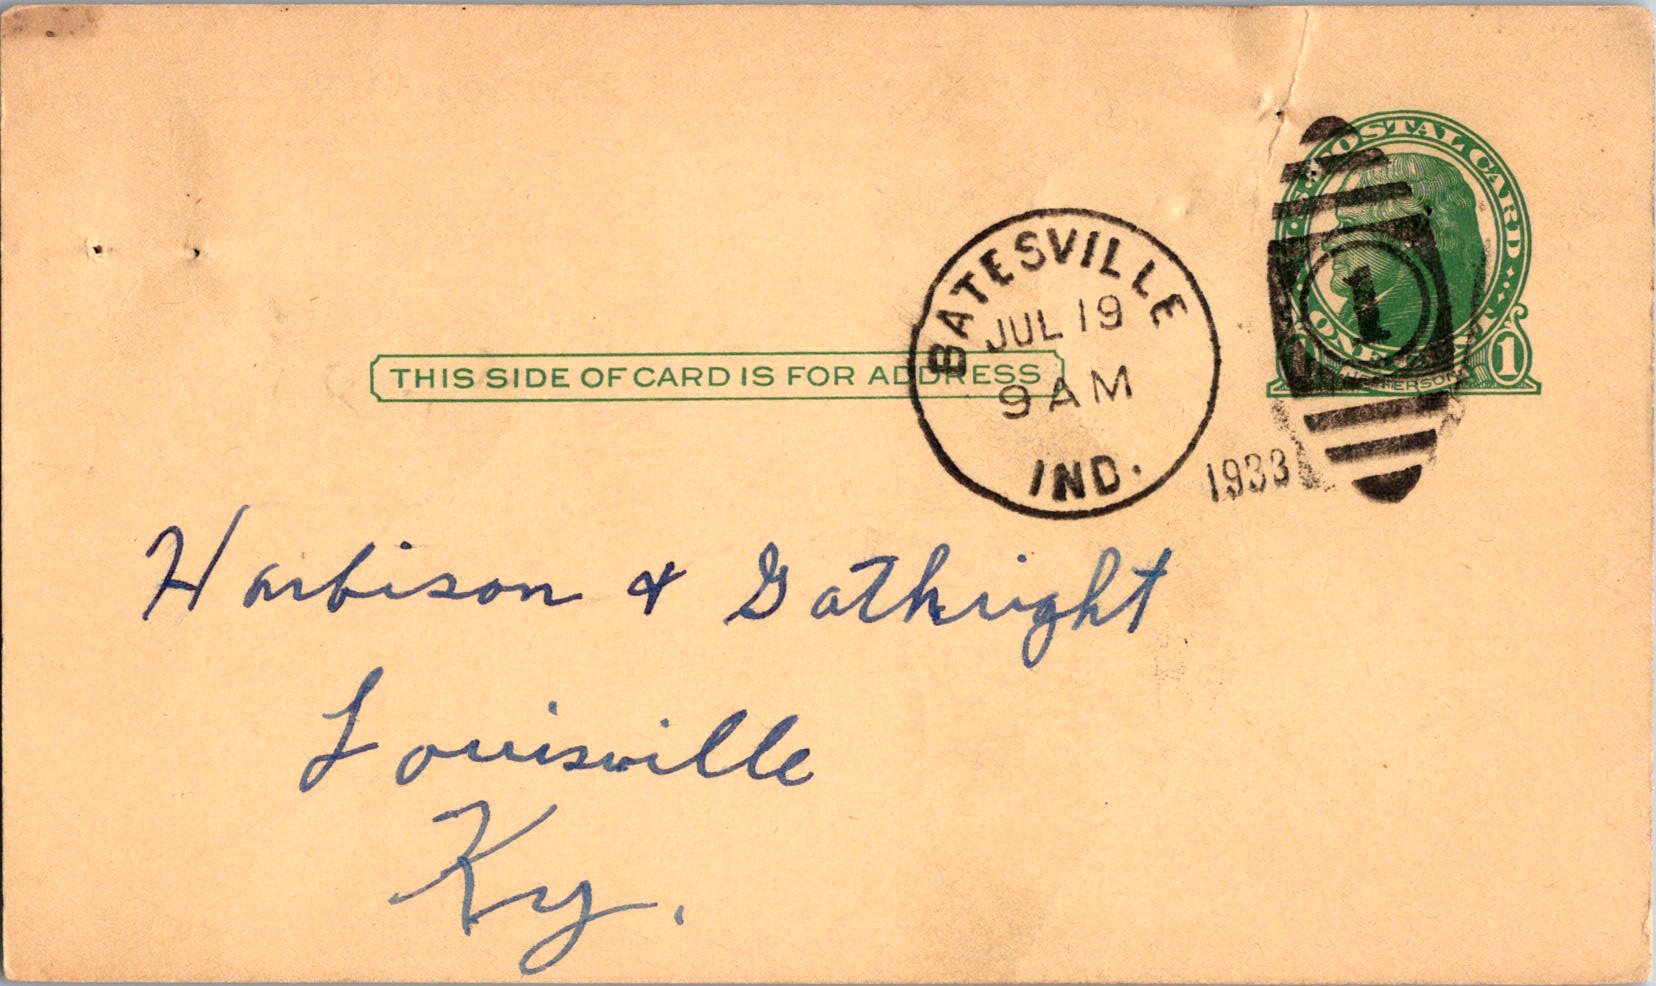 U.S. POSTAL CARD
ONE CENT
JEFFERSON
1
1
BATESVILLE
JUL 19
9 AM
IND.
1933
THIS SIDE OF CARD IS FOR ADDRESS
Harbison & Gathright
Louisville
Ky.